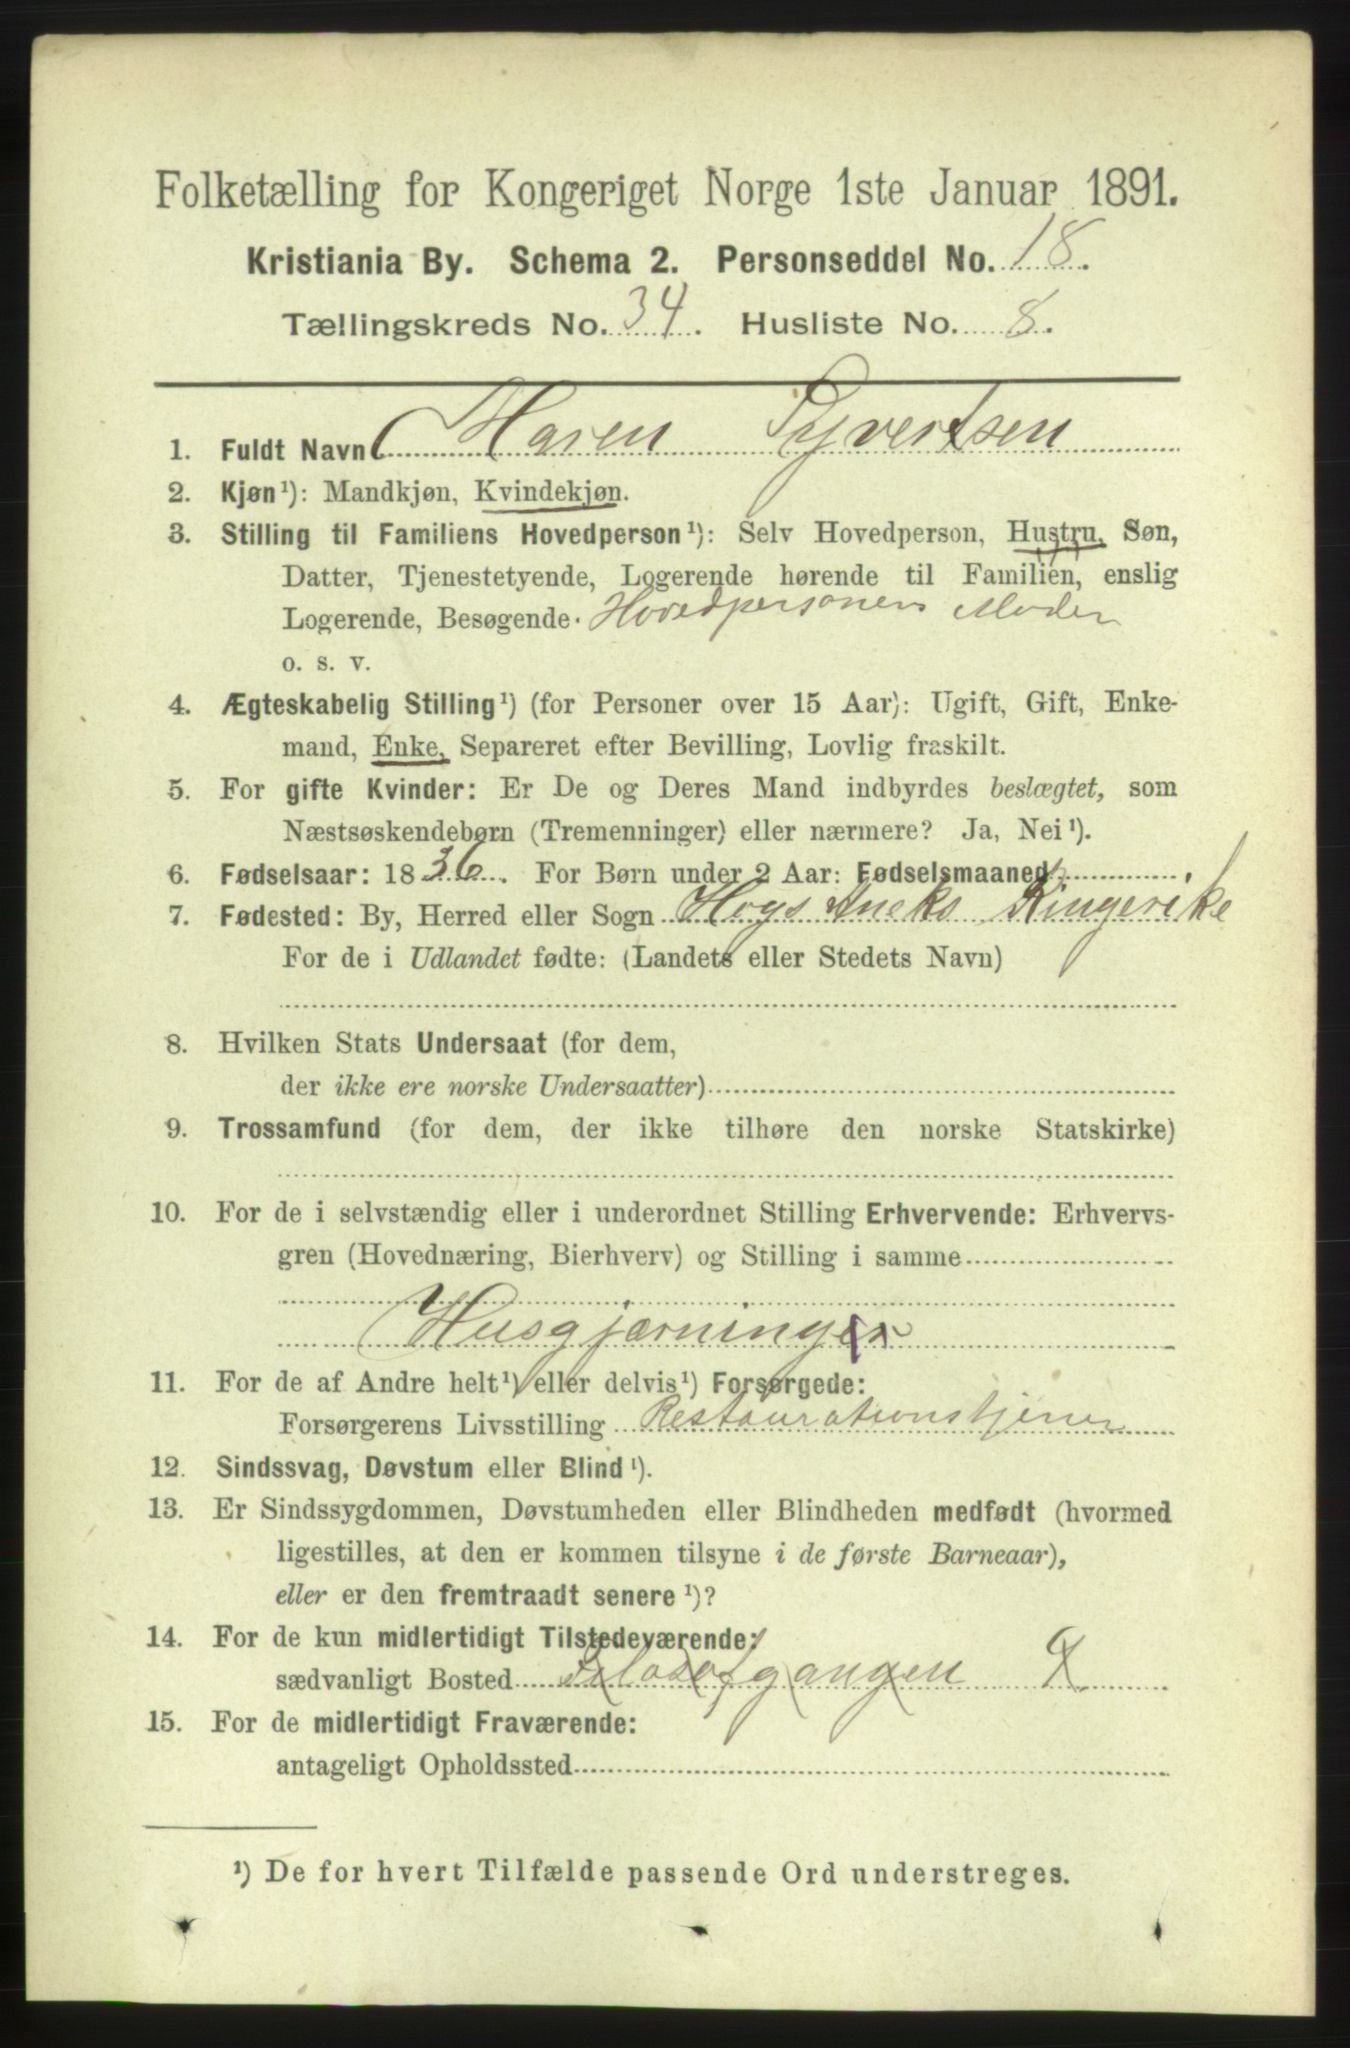 Folketælling for Kongeriget Norge 1ste Januar 1891.
Kristiania By. Schema 2. Personseddel No. 18.
Tællingskreds No. 34. Husliste No. 8.
1. Fuldt Navn Maren Syvertsen
2. Kjøn¹): Mandkjøn, Kvindekjøn.
3. Stilling til Familiens Hovedperson¹): Selv Hovedperson, Hustru, Søn,
Datter, Tjenestetyende, Logerende hørende til Familien, enslig
Logerende, Besøgende. Hovedpersonens Moder
o. s. v.
4. Ægteskabelig Stilling¹) (for Personer over 15 Aar): Ugift, Gift, Enke-
mand, Enke, Separeret efter Bevilling, Lovlig fraskilt.
5. For gifte Kvinder: Er De og Deres Mand indbyrdes beslægtet, som
Næstsøskendebørn (Tremenninger) eller nærmere? Ja, Nei¹).
6. Fødselsaar: 1836. For Børn under 2 Aar: Fødselsmaaned
7. Fødested: By, Herred eller Sogn Ringerike
For de i Udlandet fødte: (Landets eller Stedets Navn)
8. Hvilken Stats Undersaat (for dem,
der ikke ere norske Undersaatter)
9. Trossamfund (for dem, der ikke tilhøre den norske Statskirke)
10. For de i selvstændig eller i underordnet Stilling Erhvervende: Erhvervs-
gren (Hovednæring, Bierhverv) og Stilling i samme
Husgjærninger
11. For de af Andre helt¹) eller delvis¹) Forsørgede:
Forsørgerens Livsstilling Restaurationstjener
12. Sindssvag, Døvstum eller Blind¹).
13. Er Sindssygdommen, Døvstumheden eller Blindheden medfødt (hvormed
ligestilles, at den er kommen tilsyne i de første Barneaar),
eller er den fremtraadt senere¹)?
14. For de kun midlertidigt Tilstedeværende:
sædvanligt Bosted Filosofgangen
15. For de midlertidigt Fraværende:
antageligt Opholdssted
¹) De for hvert Tilfælde passende Ord understreges.